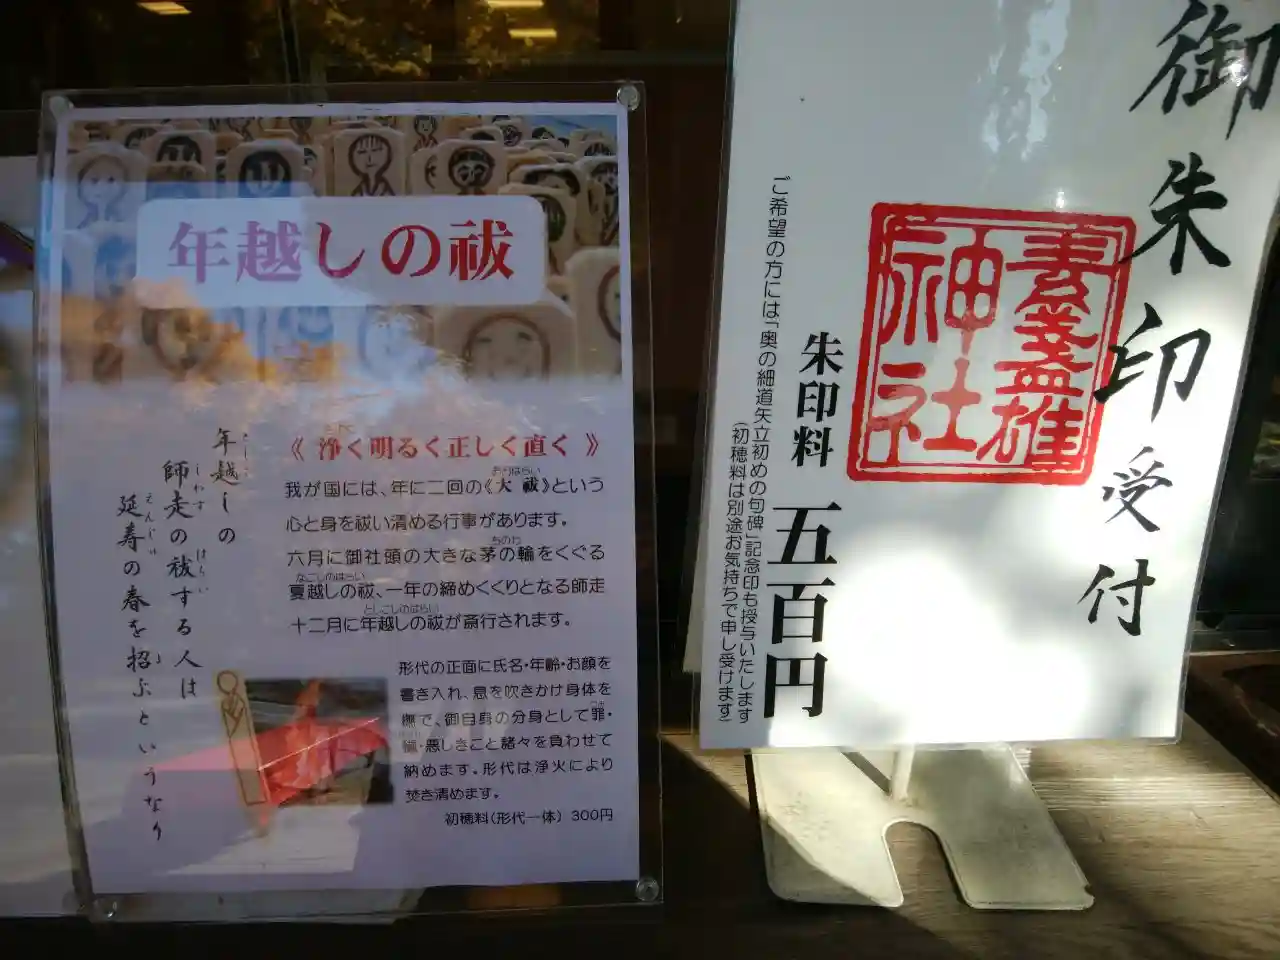 年越しの祓
《 浄く明るく正しく直く 》
我が国には、年に二回の《大祓》という
心と身を祓い清める行事があります。
六月に御社頭の大きな茅の輪をくぐる
夏越しの祓、一年の締めくくりとなる師走
十二月に年越しの祓が斎行されます。
年越しの
師走の祓する人は
延寿の春を招ぶというなり
形代の正面に氏名・年齢・お顔を
書き入れ、息を吹きかけ身体を
撫で、御自身の分身として罪・
穢・悪しきこと諸々を負わせて
納めます。形代は浄火により
焚き清めます。
初穂料(形代一体) 300円
御朱印受付
素盞雄
神社
朱印料 五百円
ご希望の方には「奥の細道矢立初めの句碑」記念印も授与いたします
(初穂料は別途お気持ちで申し受けます)